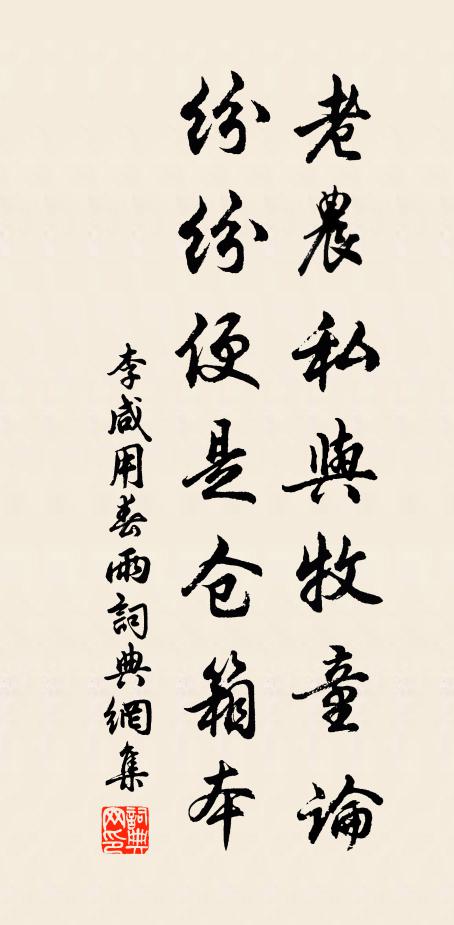 老農私與牧童論
紛紛便是仓箱本
李咸用春雨詞典網集
詞典
网印